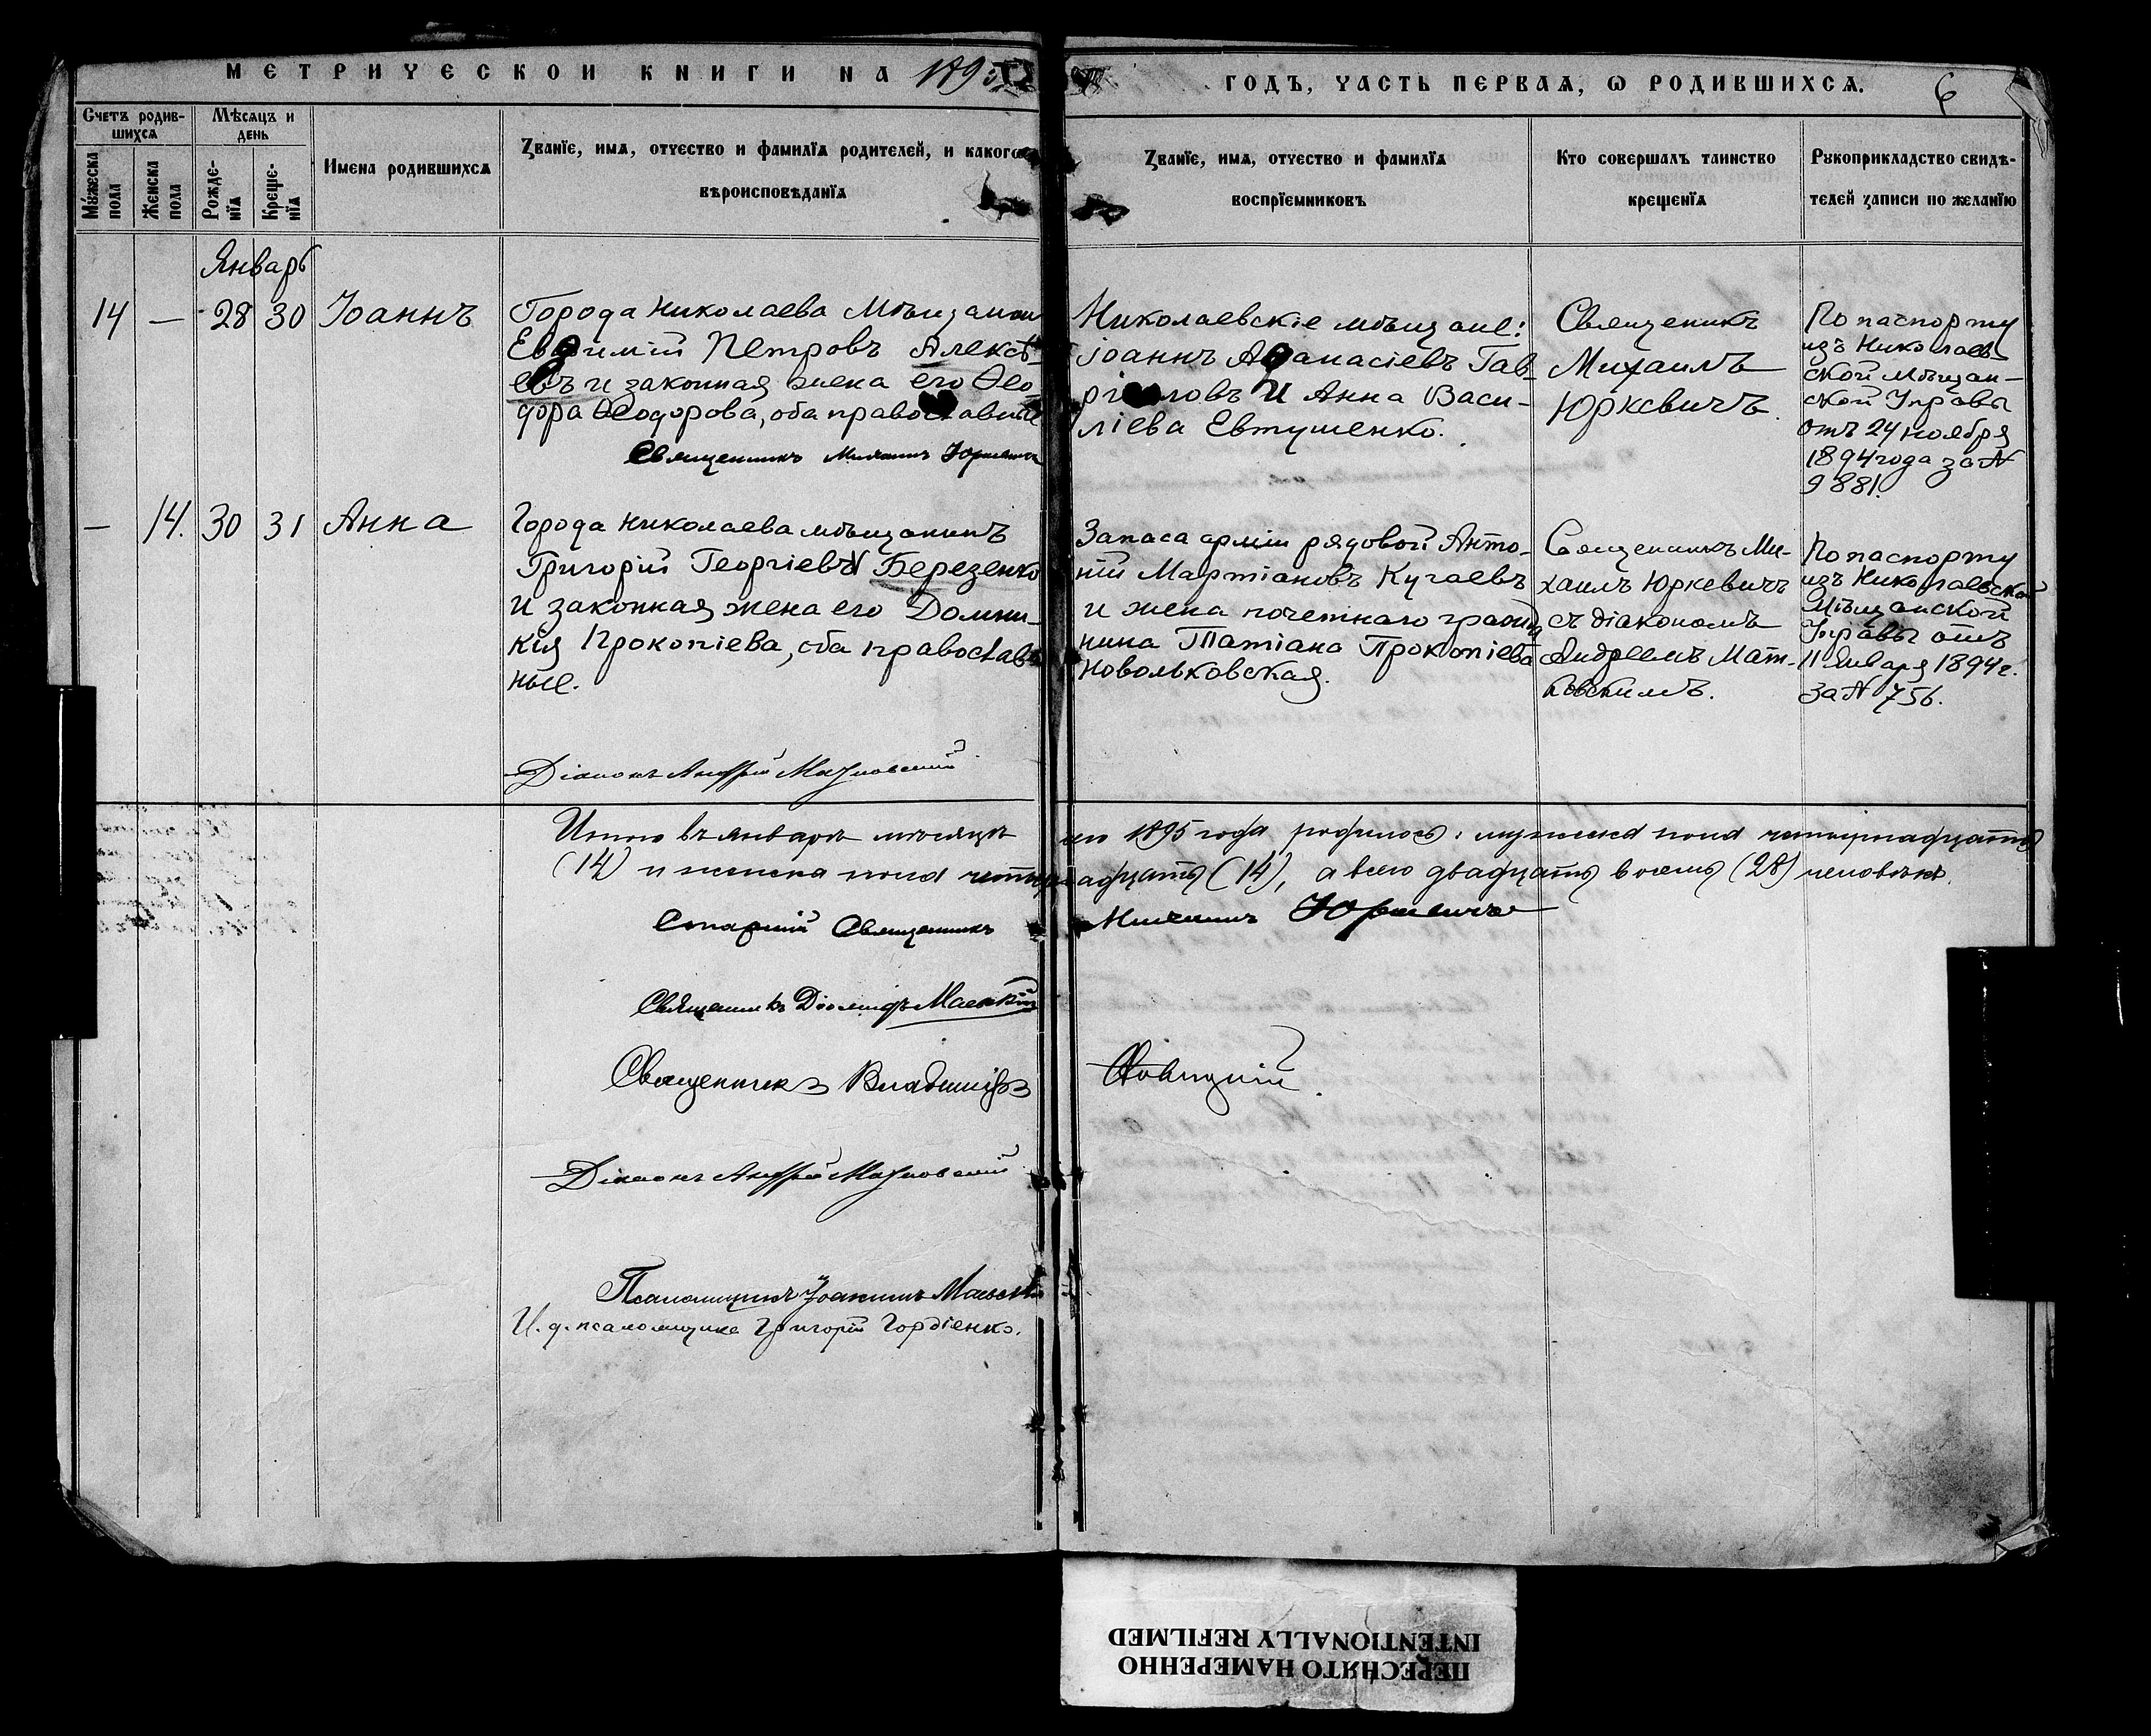 МЕТРИЧЕСКОЙ КНИГИ НА 1895
ГОДЪ, ЧАСТЬ ПЕРВАЯ, Ѡ РОДИВШИХСЯ.
6
Счетъ родив-
шихся
Мѣсяцъ и
день
Мужеска
пола
Женска
пола
Рожде-
нїя
Креще-
нїя
Имена родившихся
Званїе, имя, отчество и фамилїя родителей, и какого
вѣроисповѣданїя
Званїе, имя, отчество и фамилїя
воспрїемниковъ
Кто совершалъ таинство
крещенїя
Рукоприкладство свидѣ-
телей записи по желанїю
Январь
14 — 28 30 Іоаннъ
Города Николаева мѣщанин
Евѳимій Петровъ Алексѣ-
евъ и законная жена его Ѳео-
дора Ѳеодорова, оба православные
Священникъ Михаилъ Юркевичъ
Николаевскіе мѣщане:
Іоаннъ Аѳанасіевъ Гав-
риловъ и Анна Васи-
ліева Евтушенко.
Священникъ
Михаилъ
Юркевичъ.
По паспорту
изъ Николаев-
ской мѣщан-
ской Управы
отъ 24 ноября
1894 года за №
9881.
— 14. 30 31 Анна
Города Николаева мѣщанинъ
Григорій Георгіевъ Березенко
и законная жена его Домни-
кія Прокопіева, оба православ-
ные.
Діаконъ Андрей Матковскій
Запаса арміи рядовой Анто-
ній Мартіановъ Кугаевъ
и жена почетнаго гражда
нина Татіана Прокопіева
Новольковская.
Священникъ Ми-
хаилъ Юркевичъ
съ діакономъ
Андреемъ Мат-
ковскимъ.
По паспорту
изъ Николаевской
Мѣщанской
Управы отъ
11 Января 1894 г.
за № 756.
Итого въ январѣ мѣсяцѣ сего 1895 года родилось: мужеска пола четырнадцать
(14) и женска пола четырнадцать (14), а всего двадцать восемь (28) человѣкъ.
Старшій Священникъ Михаилъ Юркевичъ
Священникъ Діомидъ Маевскій
Священникъ Владиміръ
Діаконъ Андрей Матковскій
Псаломщикъ Іоаннъ Маевскій
И. д. псаломщика Григорій Гордіенко.
ПЕРЕСНЯТО НАМЕРЕННО
INTENTIONALLY REFILMED